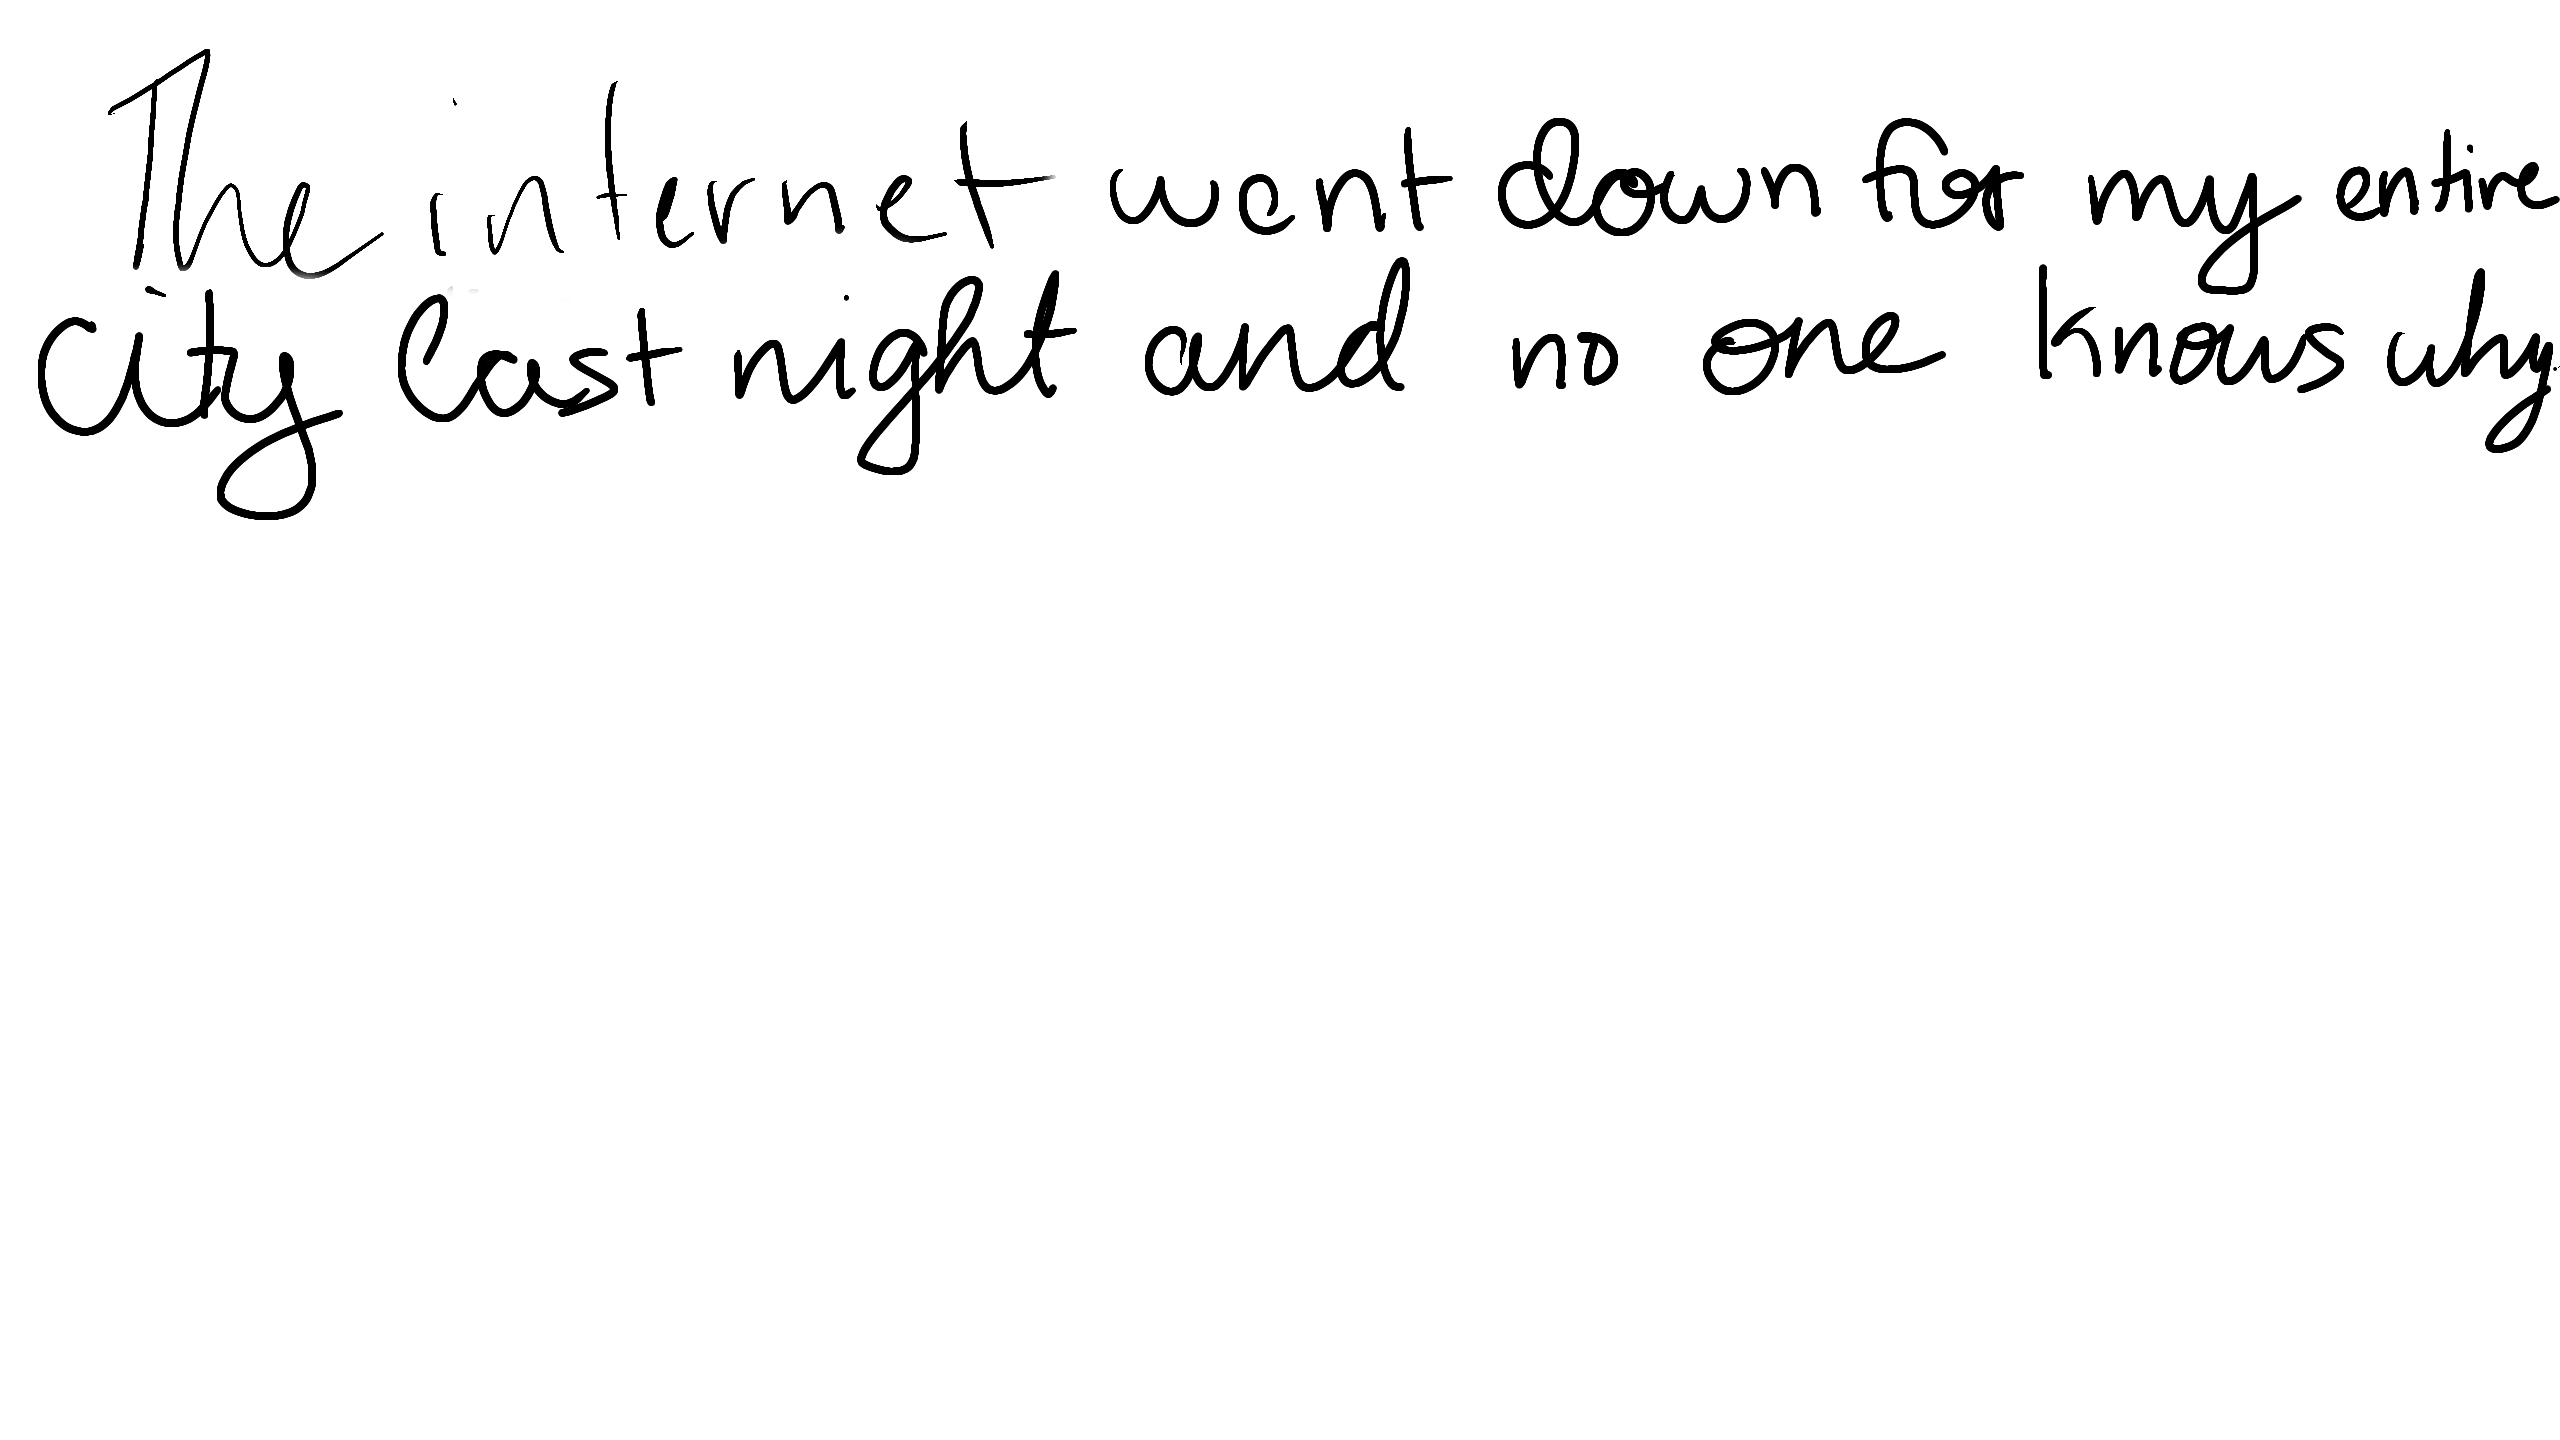 The internet went down for my entire
city last night and no one knows why.